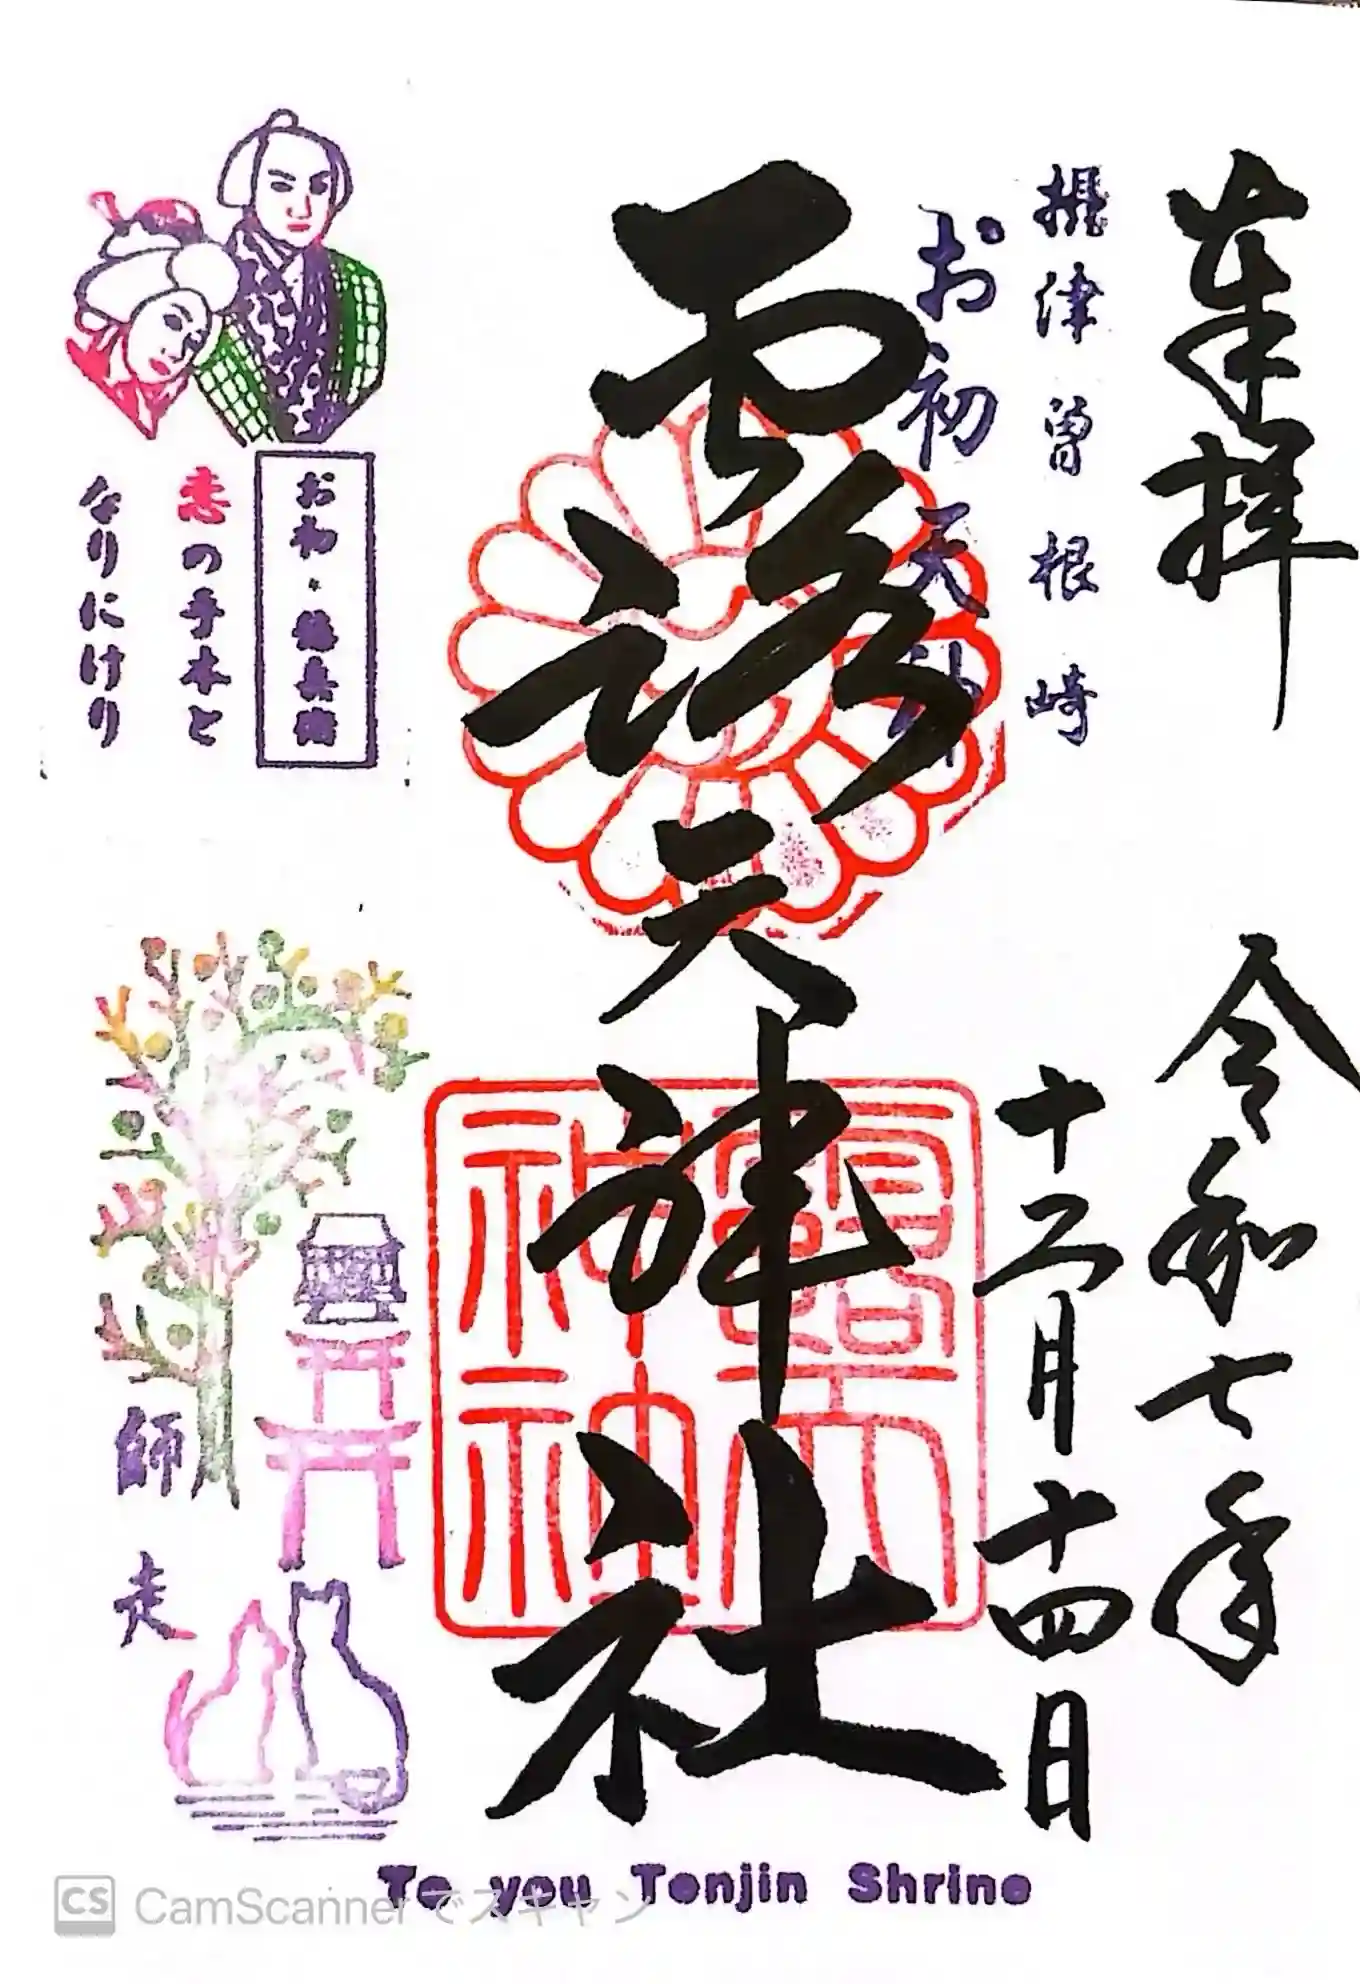 奉拝
令和七年
十二月十四日
摂津曽根崎
お初天神
露天神社
露天
神社
お初・徳兵衛
恋の手本と
なりにけり
師走
To you Tenjin Shrine
CS CamScannerでスキャン